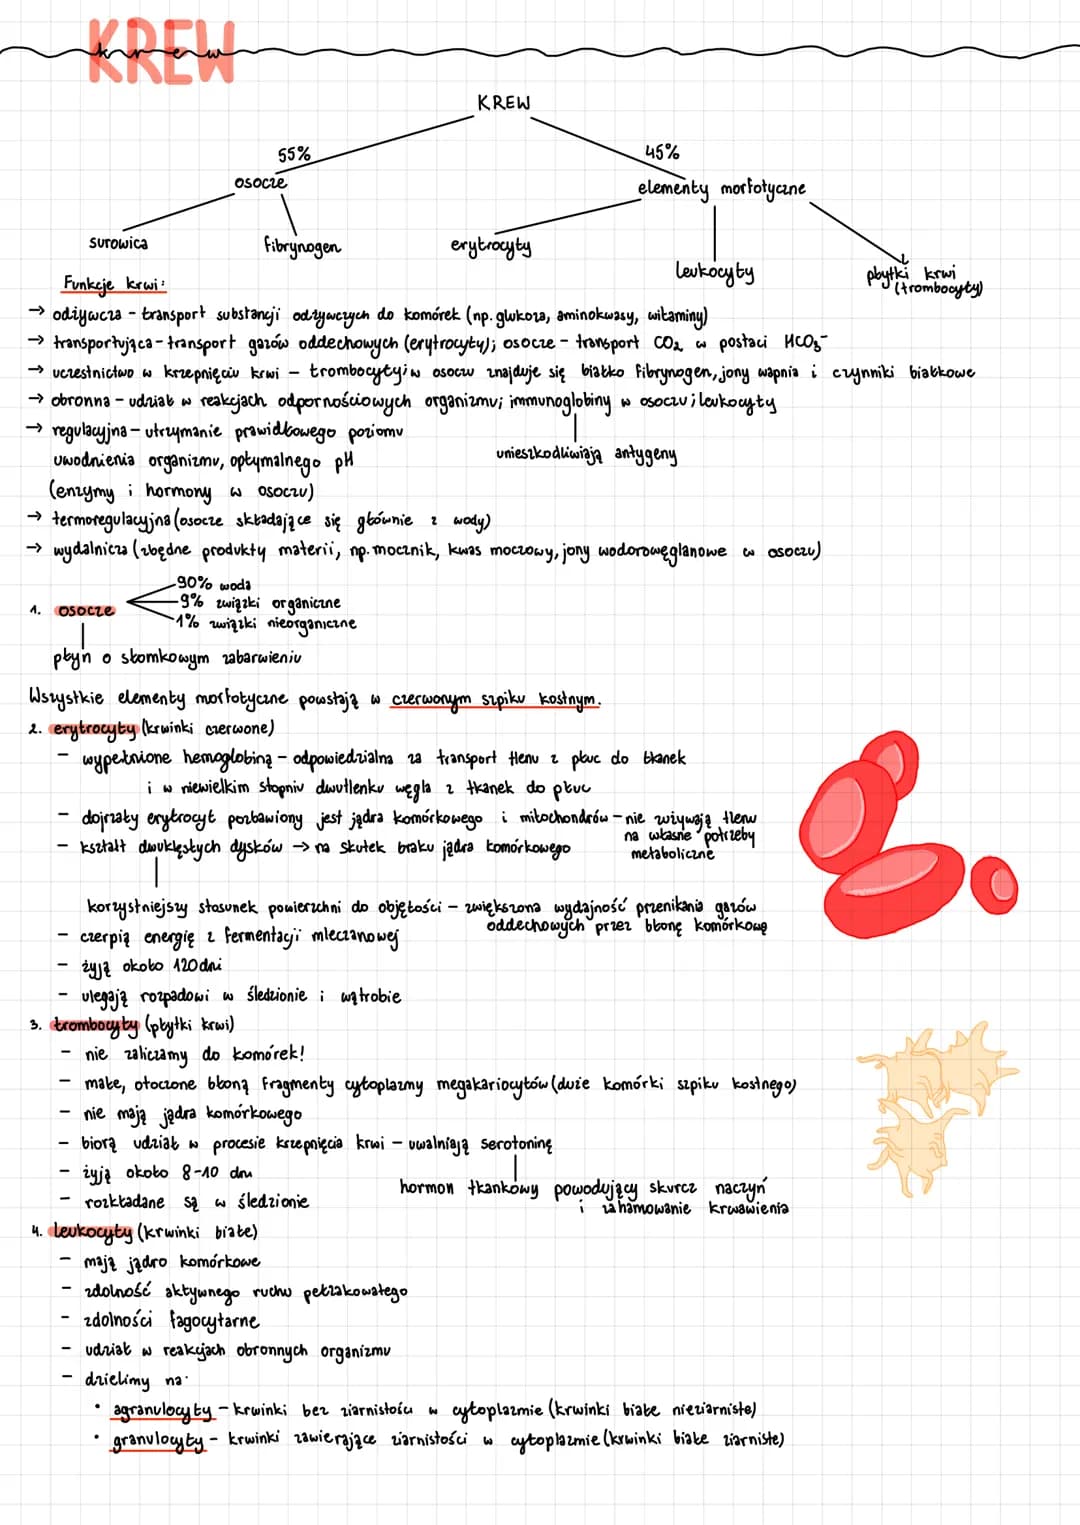 KREW
krew
KREW
55%
45%
osocze
elementy morfotyczne
surowica
fibrynogen
erytrocyty
leukocyty
płytki krwi
(trombocyty)
Funkcje krwi:
→ odżywcza - transport substancji odżywczych do komórek (np. glukoza, aminokwasy, witaminy)
→ transportująca - transport gazów oddechowych (erytrocyty); osocze - transport CO₂ w postaci HCO₃⁻
→ uczestnictwo w krzepnięciu krwi - trombocyty; w osoczu znajduje się białko fibrynogen, jony wapnia i czynniki białkowe
→ obronna - udział w reakcjach odpornościowych organizmu; immunoglobiny w osoczu; leukocyty
unieszkodliwiają antygeny
→ regulacyjna - utrzymanie prawidłowego poziomu
uwodnienia organizmu, optymalnego pH
(enzymy i hormony w osoczu)
→ termoregulacyjna (osocze składające się głównie z wody)
→ wydalnicza (zbędne produkty materii, np. mocznik, kwas moczowy, jony wodorowęglanowe w osoczu)
1. osocze
-90% woda
-9% związki organiczne
-1% związki nieorganiczne
płyn o słomkowym zabarwieniu
Wszystkie elementy morfotyczne powstają w czerwonym szpiku kostnym.
2. erytrocyty (krwinki czerwone)
- wypełnione hemoglobiną - odpowiedzialna za transport tlenu z płuc do tkanek
i w niewielkim stopniu dwutlenku węgla z tkanek do płuc
- dojrzały erytrocyt pozbawiony jest jądra komórkowego i mitochondrów - nie zużywają tlenu
na własne potrzeby
metaboliczne
- kształt dwuklęsłych dysków → na skutek braku jądra komórkowego
korzystniejszy stosunek powierzchni do objętości - zwiększona wydajność przenikania gazów
oddechowych przez błonę komórkową
- czerpią energię z fermentacji mleczanowej
- żyją około 120 dni
- ulegają rozpadowi w śledzionie i wątrobie
3. trombocyty (płytki krwi)
- nie zaliczamy do komórek!
- małe, otoczone błoną fragmenty cytoplazmy megakariocytów (duże komórki szpiku kostnego)
- nie mają jądra komórkowego
- biorą udział w procesie krzepnięcia krwi - uwalniają serotoninę
hormon tkankowy powodujący skurcz naczyń
i zahamowanie krwawienia
- żyją około 8-10 dni
- rozkładane są w śledzionie
4. leukocyty (krwinki białe)
- mają jądro komórkowe
- zdolność aktywnego ruchu pełzakowatego
- zdolności fagocytarne
- udział w reakcjach obronnych organizmu
- dzielimy na:
• agranulocyty - krwinki bez ziarnistości w cytoplazmie (krwinki białe nieziarniste)
• granulocyty - krwinki zawierające ziarnistości w cytoplazmie (krwinki białe ziarniste)